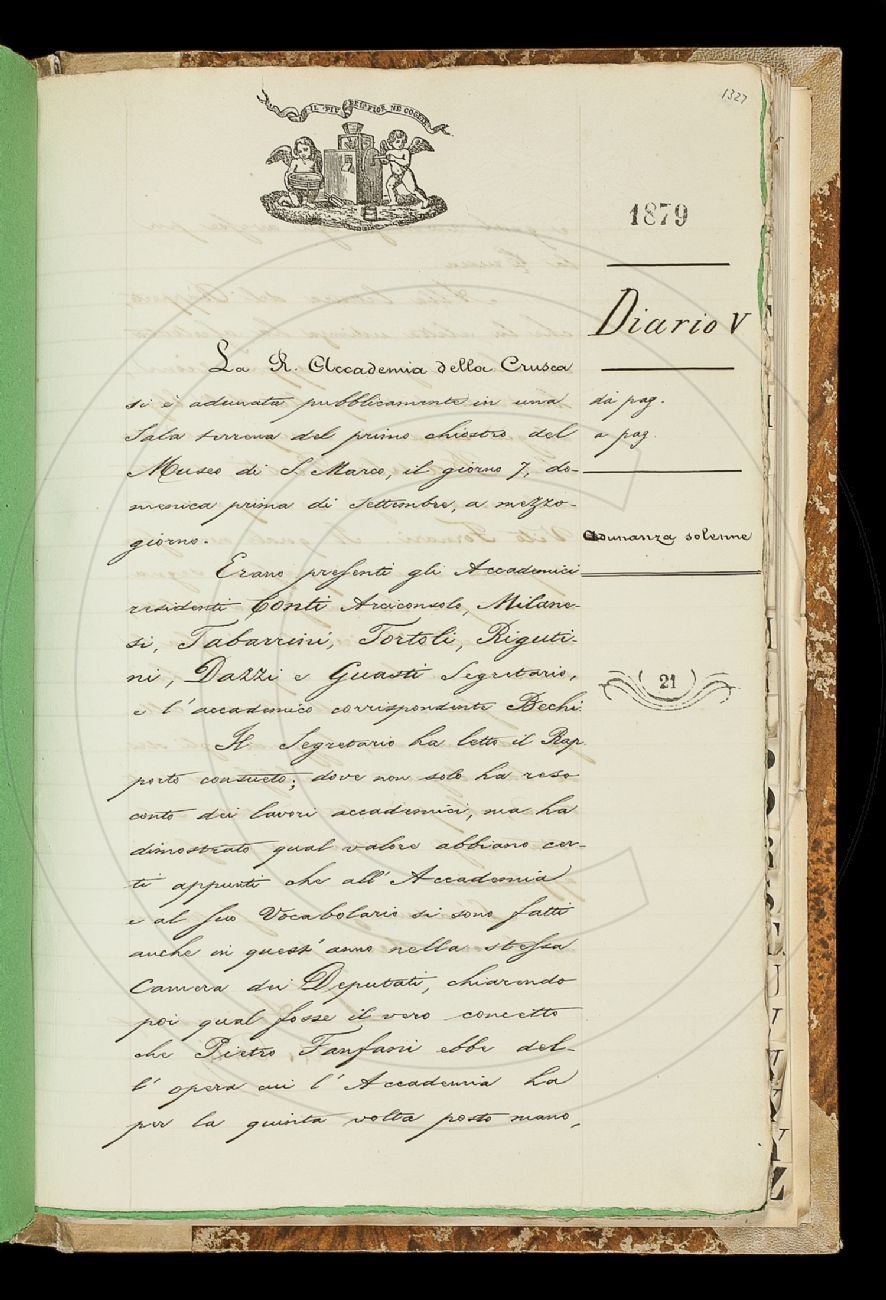 1327
IL PIV BEL FIOR NE COGLIE
1879
Diario V
da pag.
a pag.
Adunanza solenne
21
La R. Accademia della Crusca
si è adunata pubblicamente in una
Sala terrena del primo chiostro del
Museo di S. Marco, il giorno 7, do-
menica prima di Settembre, a mezzo-
giorno.
Erano presenti gli Accademici
residenti Conti Arciconsolo, Milane-
si, Tabarrini, Tortoli, Riguti-
ni, Dazzi e Guasti Segretario,
e l'accademico corrispondente Bechi
Il Segretario ha letto il Rap
porto consueto; dove non solo ha reso
conto dei lavori accademici, ma ha
dimostrato qual valore abbiano cer-
ti appunti che all'Accademia
e al suo Vocabolario si sono fatti
anche in quest'anno nella stessa
Camera dei Deputati, chiarendo
poi qual fosse il vero concetto
che Pietro Fanfani ebbe del-
l'opera cui l'Accademia ha
per la quinta volta posto mano,